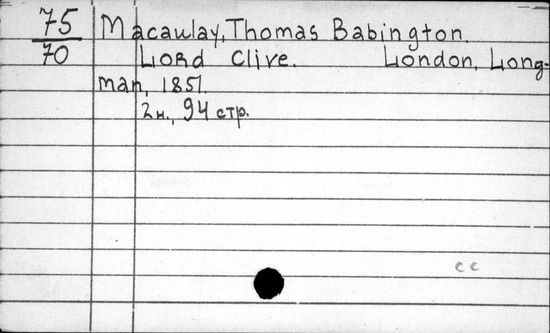 75 Macaulay, Thomas Babington.
70 Lord Clive. London, Long=
man, 1851.
2н., 94 стр.
cc